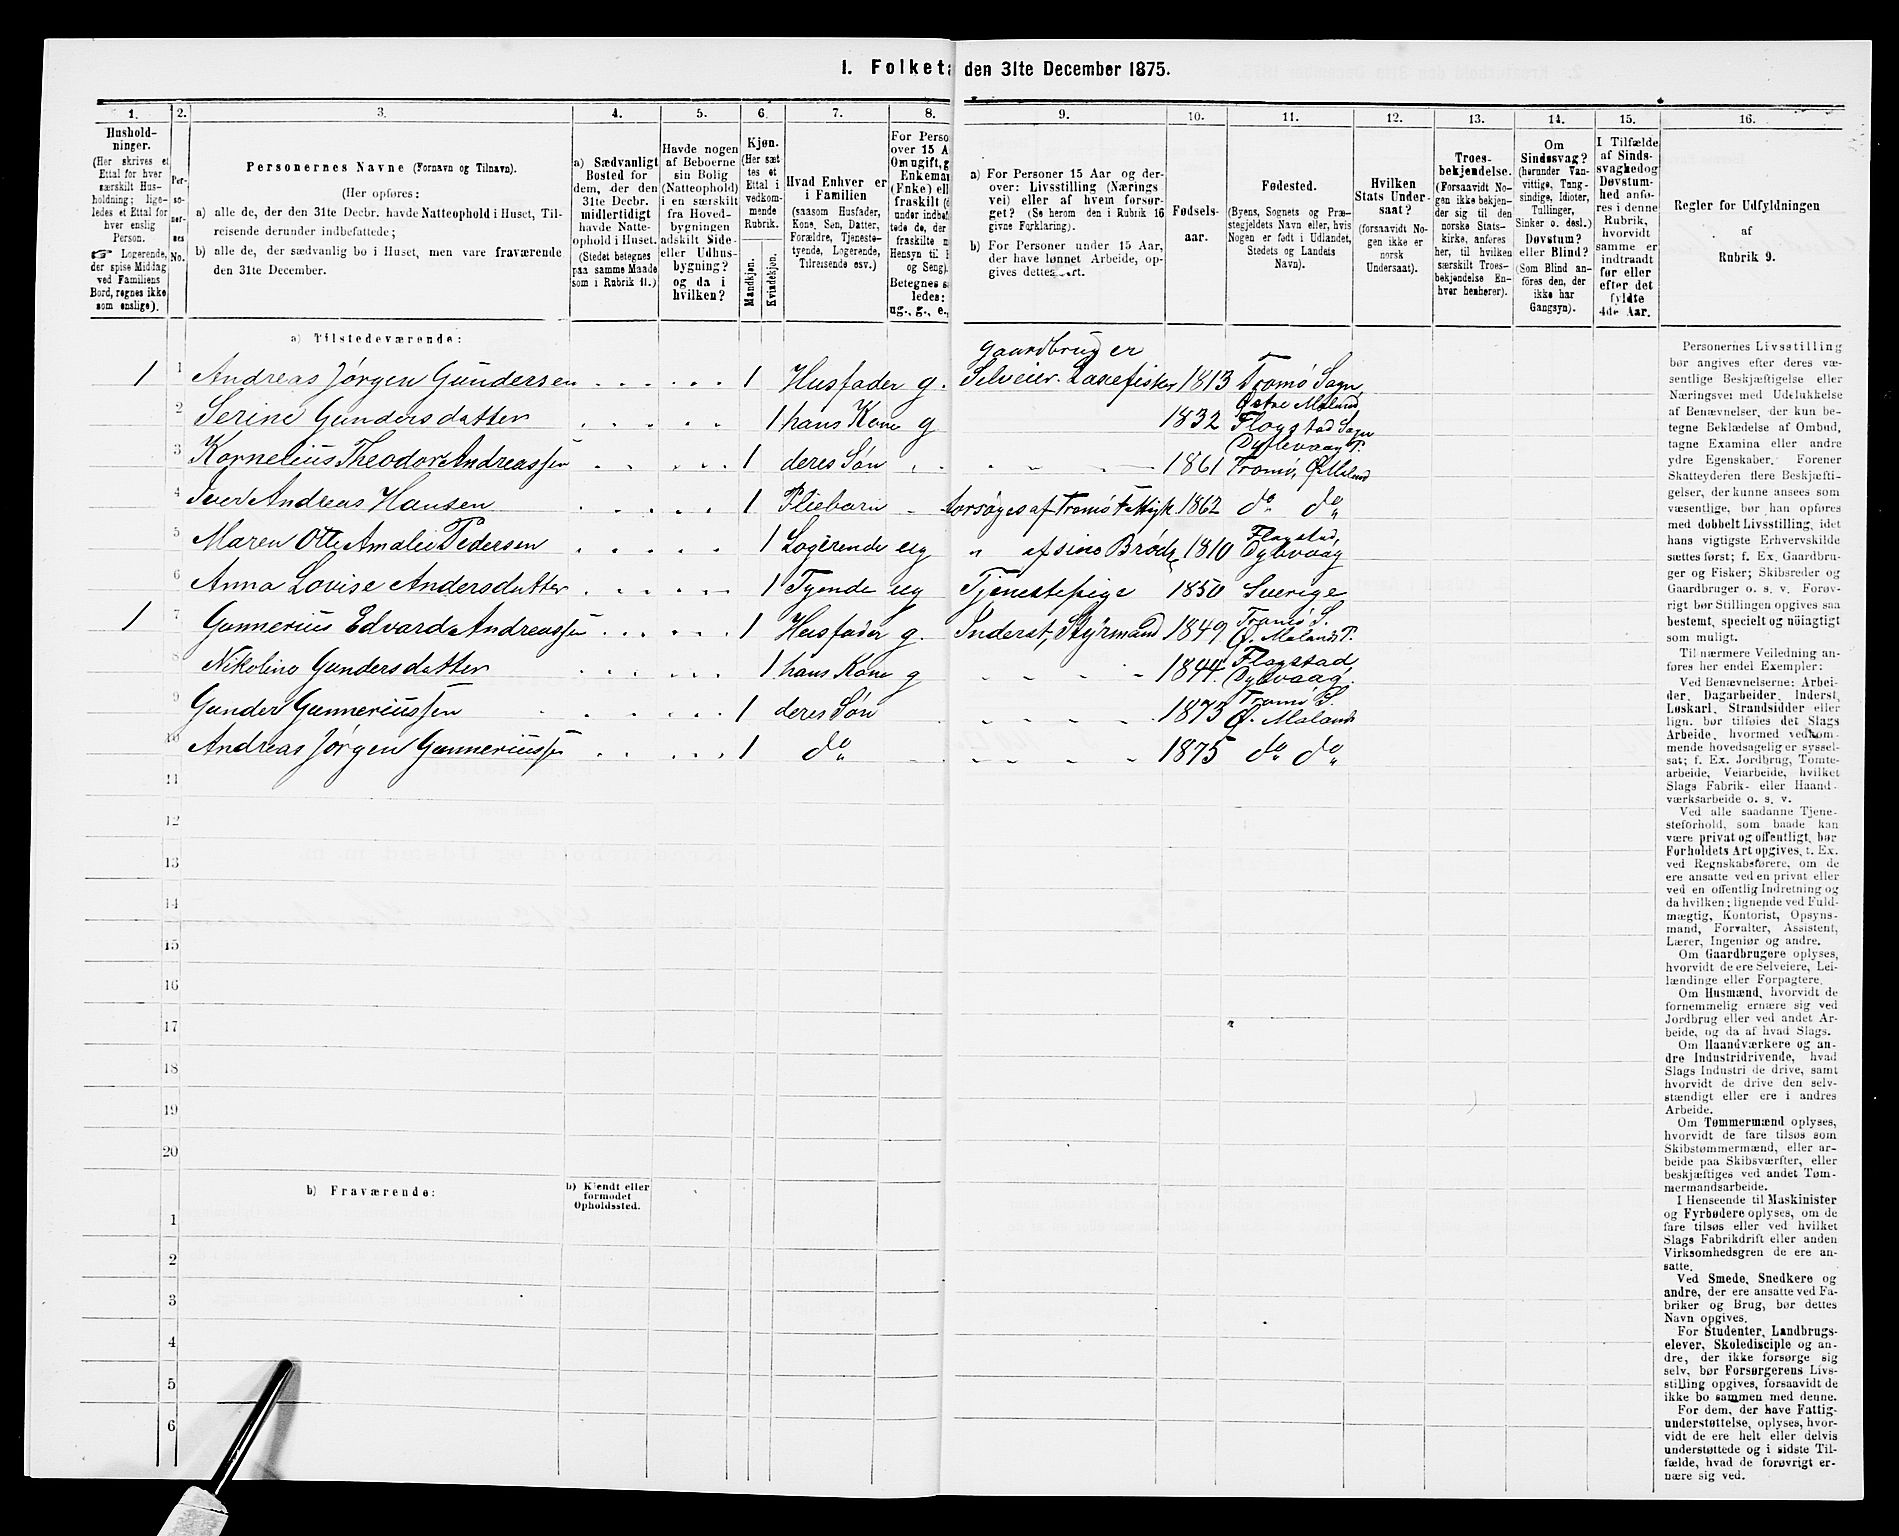 I. Folketæ den 31te December 1875.
1. 2. 3. 4. 5. 6. 7. 8. 9. 10. 11. 12. 13. 14. 15. 16.
Hushold-
ninger.
(Her skrives et
Ettal for hver
særskilt Hus-
holdning; lige-
ledes et Ettal for
hver enslig
Person.
☞ Logerende,
der spise Middag
ved Familiens
Bord, regnes ikke
som enslige).
Per-
so-
ner-
nes
No.
Personernes Navne (Fornavn og Tilnavn).
(Her opføres:
a) alle de, der den 31te Decbr. havde Natteophold i Huset, Til-
reisende derunder indbefattede;
b) alle de, der sædvanlig bo i Huset, men vare fraværende
den 31te December.
a) Sædvanligt
Bosted for
dem, der den
31te Decbr.
midlertidigt
havde Natte-
ophold i Huset.
(Stedet betegnes
paa samme Maade
som i Rubrik 11.)
Havde nogen
af Beboerne
sin Bolig
(Natteophold)
i en særskilt
fra Hoved-
bygningen
adskilt Side-
eller Udhus-
bygning?
og da i
hvilken?
Kjøn.
(Her sæt
tes et
Ettal i
vedkom-
mende
Rubrik.
Mandkjøn.
Kvindekjøn.
Hvad Enhver er
i Familien
(saasom Husfader,
Kone, Søn, Datter,
Forældre, Tjeneste-
tyende, Logerende,
Tilreisende osv.)
For Perso
over 15 A
Om ugift, g
Enkemar
(Enke) ell
fraskilt (
under indbe
tede de, der
fraskilte
Hensyn til
og Seng).
Betegnes s
ledes:
ug., g., e.,
a) For Personer 15 Aar og der-
over: Livsstilling (Nærings
vei) eller af hvem forsør-
get? (Se herom den i Rubrik 16
givne Forklaring).
b) For Personer under 15 Aar,
der have lønnet Arbeide, op-
gives dettes Art.
Fødsels-
aar.
Fødested.
(Byens, Sognets og Præ-
stegjeldets Navn eller, hvis
Nogen er født i Udlandet,
Stedets og Landets
Navn).
Hvilken
Stats Under-
saat?
(forsaavidt No-
gen ikke er
norsk
Undersaat).
Troes-
bekjendelse.
(Forsaavidt No-
gen ikke bekjen-
der sig til den
norske Stats-
kirke, anføres
her, til hvilken
særskilt Troes-
bekjendelse En-
hver henhører).
Om
Sindssvag?
(herunder Van-
vittige, Tung-
sindige, Idioter,
Tullinger,
Sinker o. desl.)
Døvstum?
eller Blind?
(Som Blind an-
føres den, der
ikke har
Gangsyn).
I Tilfælde
af Sinds-
svaghed og
Døvstum-
hed anfø-
res i denne
Rubrik,
hvorvidt
samme er
indtraadt
før eller
efter det
fyldte
4de Aar.
Regler for Udfyldningen
af
Rubrik 9.
a) Tilstedeværende:
Gaardbruger
1 1 Andreas Jørgen Gundersen 1 Husfader g. Selveier. Laxefisker 1813 Tromø Sogn
Østre Moland
2 Serine Gundersdatter 1 hans Kone g 1832 Flagstad Sogn
Dybevaag P.
3 Kornelius Theodor Andreassen 1 deres Søn 1861 Tromø, Ø. Moland
4 Iver Andreas Hansen 1 Pliebarn forsøges af Tromø Fattigk 1862 do do
5 Maren Otte Amalie Pedersen 1 Logerende ug " af sine Brødre 1810 Flagstad,
Dybevaag
6 Anna Lovise Andersdatter 1 Tyende ug Tjenestepige 1850 Sverige
1 7 Gunnerius Edvard Andreassen 1 Husfader g. Inderst, Styrmand 1849 Tromø S.
Ø. Molands P.
8 Nikoline Gundersdatter 1 hans Kone g 1844 Flagstad,
Dybvaag.
9 Gunder Gunneriussen 1 deres Søn 1873 Tromø S.
Ø. Moland
10 Andreas Jørgen Gunneriussen 1 do 1875 do do
11
12
13
14
15
16
17
18
19
20
b) Fraværende:
b) Kjendt eller
formodet
Opholdssted.
1
2
3
4
5
6
Personernes Livsstilling
bør angives efter deres væ-
sentlige Beskjæftigelse eller
Næringsvei med Udelukkelse
af Benævnelser, der kun be-
tegne Beklædelse af Ombud,
tagne Examina eller andre
ydre Egenskaber. Forener
Skatteyderen flere Beskjæfti-
gelser, der kunne ansees som
væsentlige, bør han opføres
med dobbelt Livsstilling, idet
hans vigtigste Erhvervskilde
sættes først; f. Ex. Gaardbru-
ger og Fisker; Skibsreder og
Gaardbruger o. s. v. Forøv-
rigt bør Stillingen opgives saa
bestemt, specielt og nøiagtigt
som muligt.
Til nærmere Veiledning an-
føres her endel Exempler:
Ved Benævnelserne: Arbei-
der, Dagarbeider, Inderst,
Løskarl, Strandsidder eller
lign. bør tilføies det Slags
Arbeide, hvormed vedkom-
mende hovedsagelig er syssel-
sat; f. Ex. Jordbrug, Tomte-
arbeide, Veiarbeide, hvilket
Slags Fabrik- eller Haand-
værksarbeide o. s. v.
Ved alle saadanne Tjene-
steforhold, som baade kan
være privat og offentligt, bør
Forholdets Art opgives, t. Ex.
ved Regnskabsførere, om de
ere ansatte ved en privat eller
ved en offentlig Indretning og
da hvilken; lignende ved Fuld-
mægtig, Kontorist, Opsyns-
mand, Forvalter, Assistent,
Lærer, Ingeniør og andre.
Om Gaardbrugere oplyses,
hvorvidt de ere Selveiere, Lei-
lændinge eller Forpagtere.
Om Husmænd, hvorvidt de
fornemmelig ernære sig ved
Jordbrug eller ved andet Ar-
beide, og da af hvad Slags.
Om Haandværkere og an-
dre Industridrivende, hvad
Slags Industri de drive, samt
hvorvidt de drive den selv-
stændigt eller ere i andres
Arbeide.
Om Tømmermænd oplyses,
hvorvidt de fare tilsøs som
Skibstømmermænd, eller ar-
beide paa Skibsværfter, eller
beskjæftiges ved andet Tøm-
mermandsarbeide.
I Henseende til Maskinister
og Fyrbødere oplyses, om de
fare tilsøs eller ved hvilket
Slags Fabrikdrift eller anden
Virksomhedsgren de ere an-
satte.
Ved Smede, Snedkere og
andre, der ere ansatte ved Fa-
briker og Brug, bør dettes
Navn opgives.
For Studenter, Landbrugs-
elever, Skoledisciple og an-
dre, der ikke forsørge sig
selv, bør Forsørgerens Livs-
stilling opgives, forsaavidt de
ikke bo sammen med denne.
For dem, der have Fattig-
understøttelse, oplyses, hvor-
vidt de ere helt eller delvis
understøttede og i sidste Til-
fælde, hvad de forøvrigt er-
nære sig ved.